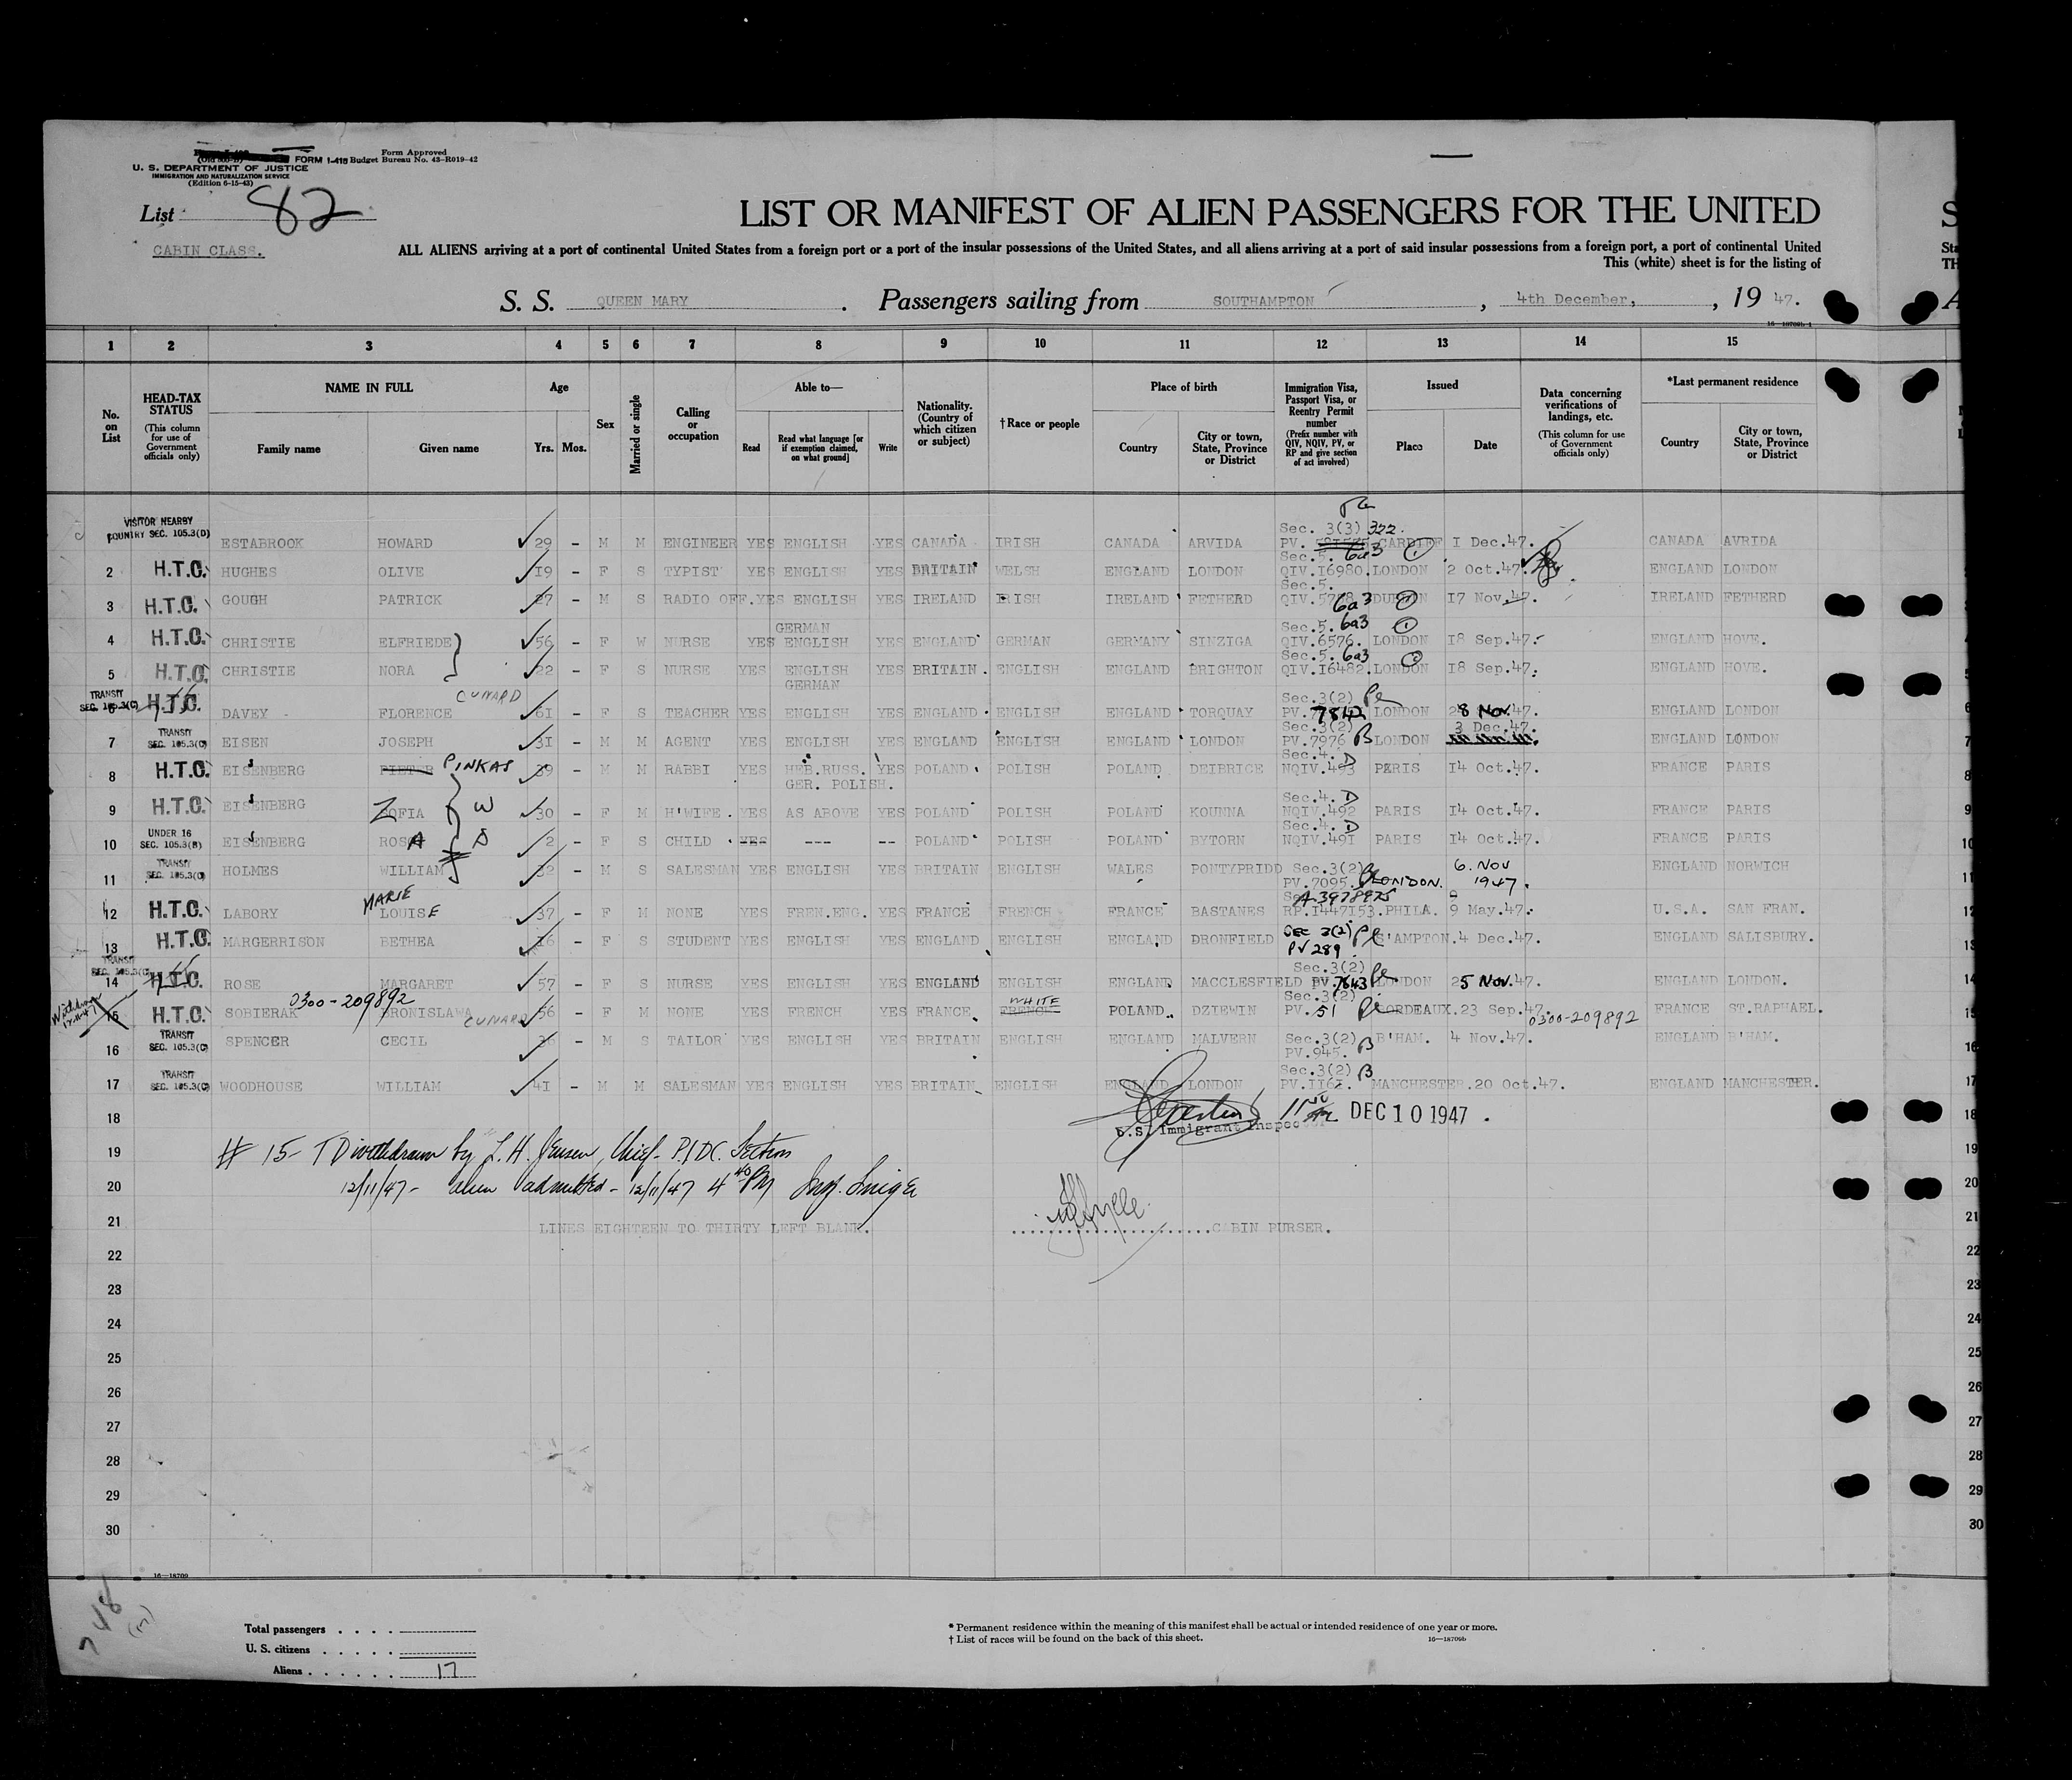 Form Approved
FORM I-415 Budget Bureau No. 43-R019-42
U. S. DEPARTMENT OF JUSTICE
IMMIGRATION AND NATURALIZATION SERVICE
(Edition 6-15-43)
List 82
CABIN CLASS.
LIST OR MANIFEST OF ALIEN PASSENGERS FOR THE UNITED
ALL ALIENS arriving at a port of continental United States from a foreign port or a port of the insular possessions of the United States, and all aliens arriving at a port of said insular possessions from a foreign port, a port of continental United
This (white) sheet is for the listing of
S. S. QUEEN MARY. Passengers sailing from SOUTHAMPTON, 4th December, , 19 47.
16—18709b-1
1 2 3 4 5 6 7 8 9 10 11 12 13 14 15
No. on List
HEAD-TAX STATUS (This column for use of Government officials only)
NAME IN FULL Family name Given name
Age Yrs. Mos.
Sex
Married or single
Calling or occupation
Able to— Read Read what language [or if exemption claimed, on what ground] Write
Nationality. (Country of which citizen or subject)
†Race or people
Place of birth Country City or town, State, Province or District
Immigration Visa, Passport Visa, or Reentry Permit number (Prefix number with QIV, NQIV, PV, or RP and give section of act involved)
Issued Place Date
Data concerning verifications of landings, etc. (This column for use of Government officials only)
*Last permanent residence Country City or town, State, Province or District
VISITOR NEARBY COUNTRY SEC. 105.3(D) ESTABROOK HOWARD 29 - M M ENGINEER YES ENGLISH YES CANADA IRISH CANADA ARVIDA Sec. 3(3) 322. PV. CARDIFF 1 Dec.47. CANADA AVRIDA
2 H.T.C. HUGHES OLIVE 19 - F S TYPIST YES ENGLISH YES BRITAIN WELSH ENGLAND LONDON Sec.5. 6a3 QIV.16980. LONDON 2 Oct.47. ENGLAND LONDON
3 H.T.C. GOUGH PATRICK 27 - M S RADIO OFF. YES ENGLISH YES IRELAND IRISH IRELAND FETHERD Sec.5. 6a3 QIV. DUBLIN 17 Nov.47. IRELAND FETHERD
4 H.T.C. CHRISTIE ELFRIEDE 56 - F W NURSE YES GERMAN ENGLISH YES ENGLAND GERMAN GERMANY SINZIGA Sec.5. 6a3 QIV.6576. LONDON 18 Sep.47. ENGLAND HOVE.
5 H.T.C. CHRISTIE NORA 22 - F S NURSE YES ENGLISH GERMAN YES BRITAIN. ENGLISH ENGLAND BRIGHTON Sec.5. 6a3 QIV.16482. LONDON 18 Sep.47. ENGLAND HOVE.
CUNARD
TRANSIT SEC. 105.3(C) 6 H.T.C. DAVEY FLORENCE 61 - F S TEACHER YES ENGLISH YES ENGLAND. ENGLISH ENGLAND TORQUAY Sec.3(2) PV. 7842 LONDON 28 Nov.47. ENGLAND LONDON
7 TRANSIT SEC. 105.3(C) EISEN JOSEPH 31 - M M AGENT YES ENGLISH YES ENGLAND ENGLISH ENGLAND LONDON Sec.3(2) PV.7976 LONDON 3 Dec.47. ENGLAND LONDON
8 H.T.C. EISENBERG PIETER PINKAS 39 - M M RABBI YES HEB.RUSS. GER. POLISH. YES POLAND. POLISH POLAND DEIBRICE Sec.4. D NQIV.493 PARIS 14 Oct.47. FRANCE PARIS
9 H.T.C. EISENBERG ZOFIA W 30 - F M H'WIFE. YES AS ABOVE YES POLAND POLISH POLAND KOUNNA Sec.4. D NQIV.492 PARIS 14 Oct.47. FRANCE PARIS
10 UNDER 16 SEC. 105.3(B) EISENBERG ROSA D 2 - F S CHILD --- --- -- POLAND POLISH POLAND BYTORN Sec.4. D NQIV.491 PARIS 14 Oct.47. FRANCE PARIS
11 TRANSIT SEC. 105.3(C) HOLMES WILLIAM 32 - M S SALESMAN YES ENGLISH YES BRITAIN ENGLISH WALES PONTYPRIDD Sec.3(2) PV.7095. LONDON. 6. Nov 1947. ENGLAND NORWICH
12 H.T.C. LABORY MARIE LOUISE 37 - F M NONE YES FREN.ENG. YES FRANCE FRENCH FRANCE BASTANES A3978925 RP.1447153. PHILA. 9 May.47. U.S.A. SAN FRAN.
13 H.T.C. MARGERRISON BETHEA 16 - F S STUDENT YES ENGLISH YES ENGLAND ENGLISH ENGLAND DRONFIELD SEC 3(2) PV 289 S'AMPTON. 4 Dec.47. ENGLAND SALISBURY.
TRANSIT SEC. 105.3(C) 14 H.T.C. ROSE MARGARET 57 - F S NURSE YES ENGLISH YES ENGLAND ENGLISH ENGLAND MACCLESFIELD Sec.3(2) PV.7643 LONDON 25 Nov.47. ENGLAND LONDON.
0300-209892
15 H.T.C. SOBIERAK BRONISLAWA CUNARD 56 - F M NONE YES FRENCH YES FRANCE WHITE FRENCH POLAND. DZIEWIN Sec.3(2) PV. 51 BORDEAUX. 23 Sep.47. 0300-209892 FRANCE ST.RAPHAEL.
16 TRANSIT SEC. 105.3(C) SPENCER CECIL 36 - M S TAILOR YES ENGLISH YES BRITAIN ENGLISH ENGLAND MALVERN Sec.3(2) PV.945. B'HAM. 4 Nov.47. ENGLAND B'HAM.
17 TRANSIT SEC. 105.3(C) WOODHOUSE WILLIAM 41 - M M SALESMAN YES ENGLISH YES BRITAIN ENGLISH ENGLAND LONDON Sec.3(2) PV.1161. MANCHESTER. 20 Oct.47. ENGLAND MANCHESTER.
18 DEC 10 1947
U.S. Immigrant Inspector
19 # 15- TD withdrawn by L.H. Jensen, Chief- P.I.D.C. Section
20 12/11/47- alien admitted- 12/11/47 4 40 PM
21 LINES EIGHTEEN TO THIRTY LEFT BLANK. CABIN PURSER.
22
23
24
25
26
27
28
29
30
16—18709
Total passengers . . . .
U. S. citizens . . . . .
Aliens . . . . . . 17
* Permanent residence within the meaning of this manifest shall be actual or intended residence of one year or more.
† List of races will be found on the back of this sheet. 16—18709b